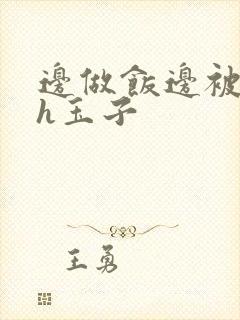 邊做飯邊被
h玉子
王勇